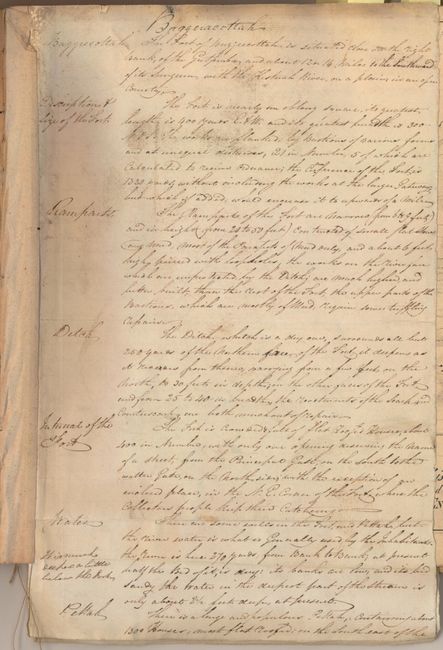 Buggucottah
Buggucottah The Fort of Buggucottah is situated close on the right
bank of the Gutpurba, and about 12 or 14 Miles to the Southward
of its Junction with the Kistnah River, on a plain in an open
Country.
Description & The Fort is nearly an oblong square, its greatest
Size of the Fort length is 400 yards E & W. and its greatest breadth is 300
N & S. The works are flanked by Bastions of various forms
and at unequal distances, 21 in Number, 5 of which are
calculated to receive ordnance; the Circumference of the Fort is
1320 yards without including the works at the larger Gateway
but which if added, would encrease it to upwards of a Mile.
Ramparts The Ramparts of the Fort are narrow from 6 to 9 feet
and in height from 24 to 50 feet, Constructed of small flat stones
and mud, most of the Parapet is of Mud only, and about 6 feet
high, pierced with loopholes, the works on the River face
which are unprotected by the Ditch, are much higher and
better built than the rest of the Fort, the upper parts of the
Bastions, which are mostly of Mud, require some trifling
repairs.
Ditch The Ditch, which is a dry one, surrounds all but
250 yards of the Northern face of the Fort, it deepens as
it recedes from thence, varying from a few feet on the
North, to 30 feet in depth, on the other faces of the Fort,
and from 25 to 40 in breadth, the revetments of the Scarp and
Counterscarp, are both in want of repair.
Internal of the The Fort is Crowded, full of flat roof'd Houses, about
Fort 400 in Number, with only one opening deserving the name
of a street, from the Principal Gate, on the South to the
water Gate, on the North side; with the exception of an
enclosed place, in the N. E. Corner of the Fort, where the
Collectors people keep their Cutcherry.
Water There are some wells in the Fort, and Pettah, but
the River water, is what is Generally used by the Inhabitants,
the River is here 270 yards from Bank to Bank, at present
half the Bed of it, is dry; its banks are low, and its bed
sandy, the Water in the deepest part of the stream is
only about 2½ feet deep, at present.
Pettah There is a large and populous Pettah, containing about
1300 Houses, most flat roofed, on the South east of the